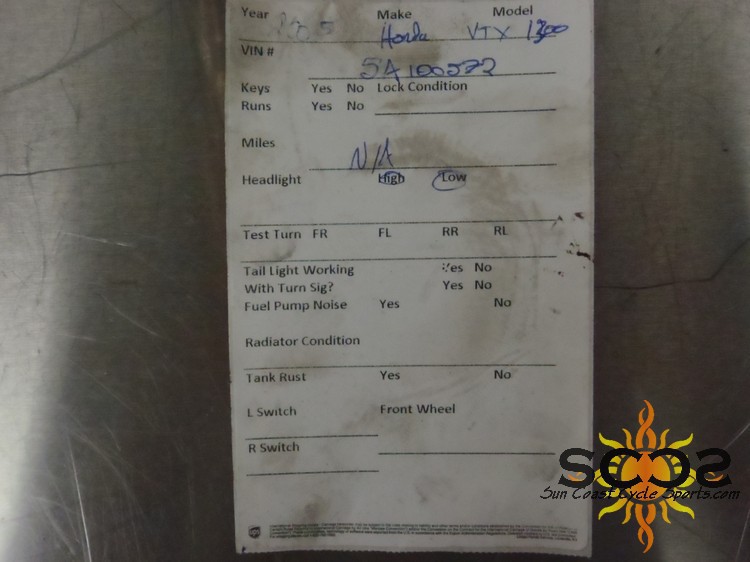 Year Make Model
2005 Honda VTX 1300
VIN #
5A100572
Keys Yes No Lock Condition
Runs Yes No
Miles
N/A
Headlight High Low
Test Turn FR FL RR RL
Tail Light Working Yes No
With Turn Sig? Yes No
Fuel Pump Noise Yes No
Radiator Condition
Tank Rust Yes No
L Switch Front Wheel
R Switch
SCCS
Sun Coast Cycle Sports.com